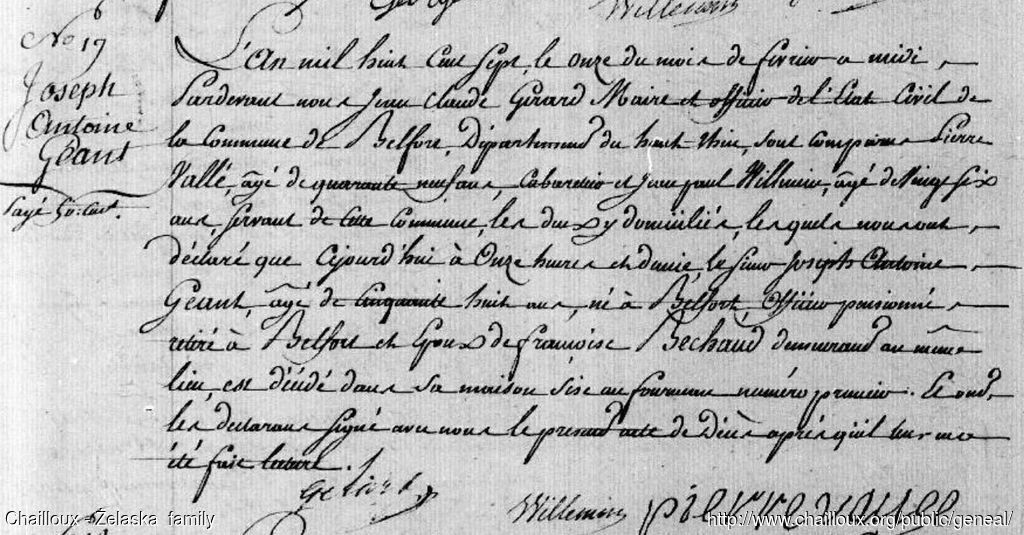 Willemin
No 19
Joseph
Antoine
Géant
payé
L'An mil huit Cent Sept, le onze du mois de fevrier a midi,
Pardevant nous Jean Claude Gérard Maire et officier de l'Etat Civil de
la Commune de Belfort, Département du haut Rhin, sont comparus Pierre
Vallé, âgé de quarante neuf ans, Cabaretier et Jean paul Willemin, âgé de Vingt Six
ans, Servant de Cette Commune, les deux y domiciliés, lesquels nous ont,
déclaré que Cejourd'hui à Onze heures et demie, le sieur Joseph Antoine
Géant, âgé de Cinquante huit ans, né à Belfort, Officier pensionné
retiré à Belfort et Epoux de françoise Bechaud demeurant au même
lieu est décédé dans sa maison sise au fourneau numéro premier. Et ont,
les déclarans Signé avec nous le present acte de Décès après qu'il leur en a
été fait lecture.
Gerard
Willemin
pierre vallee
Chailloux - Żelaska family
http://www.chailloux.org/public/geneal/